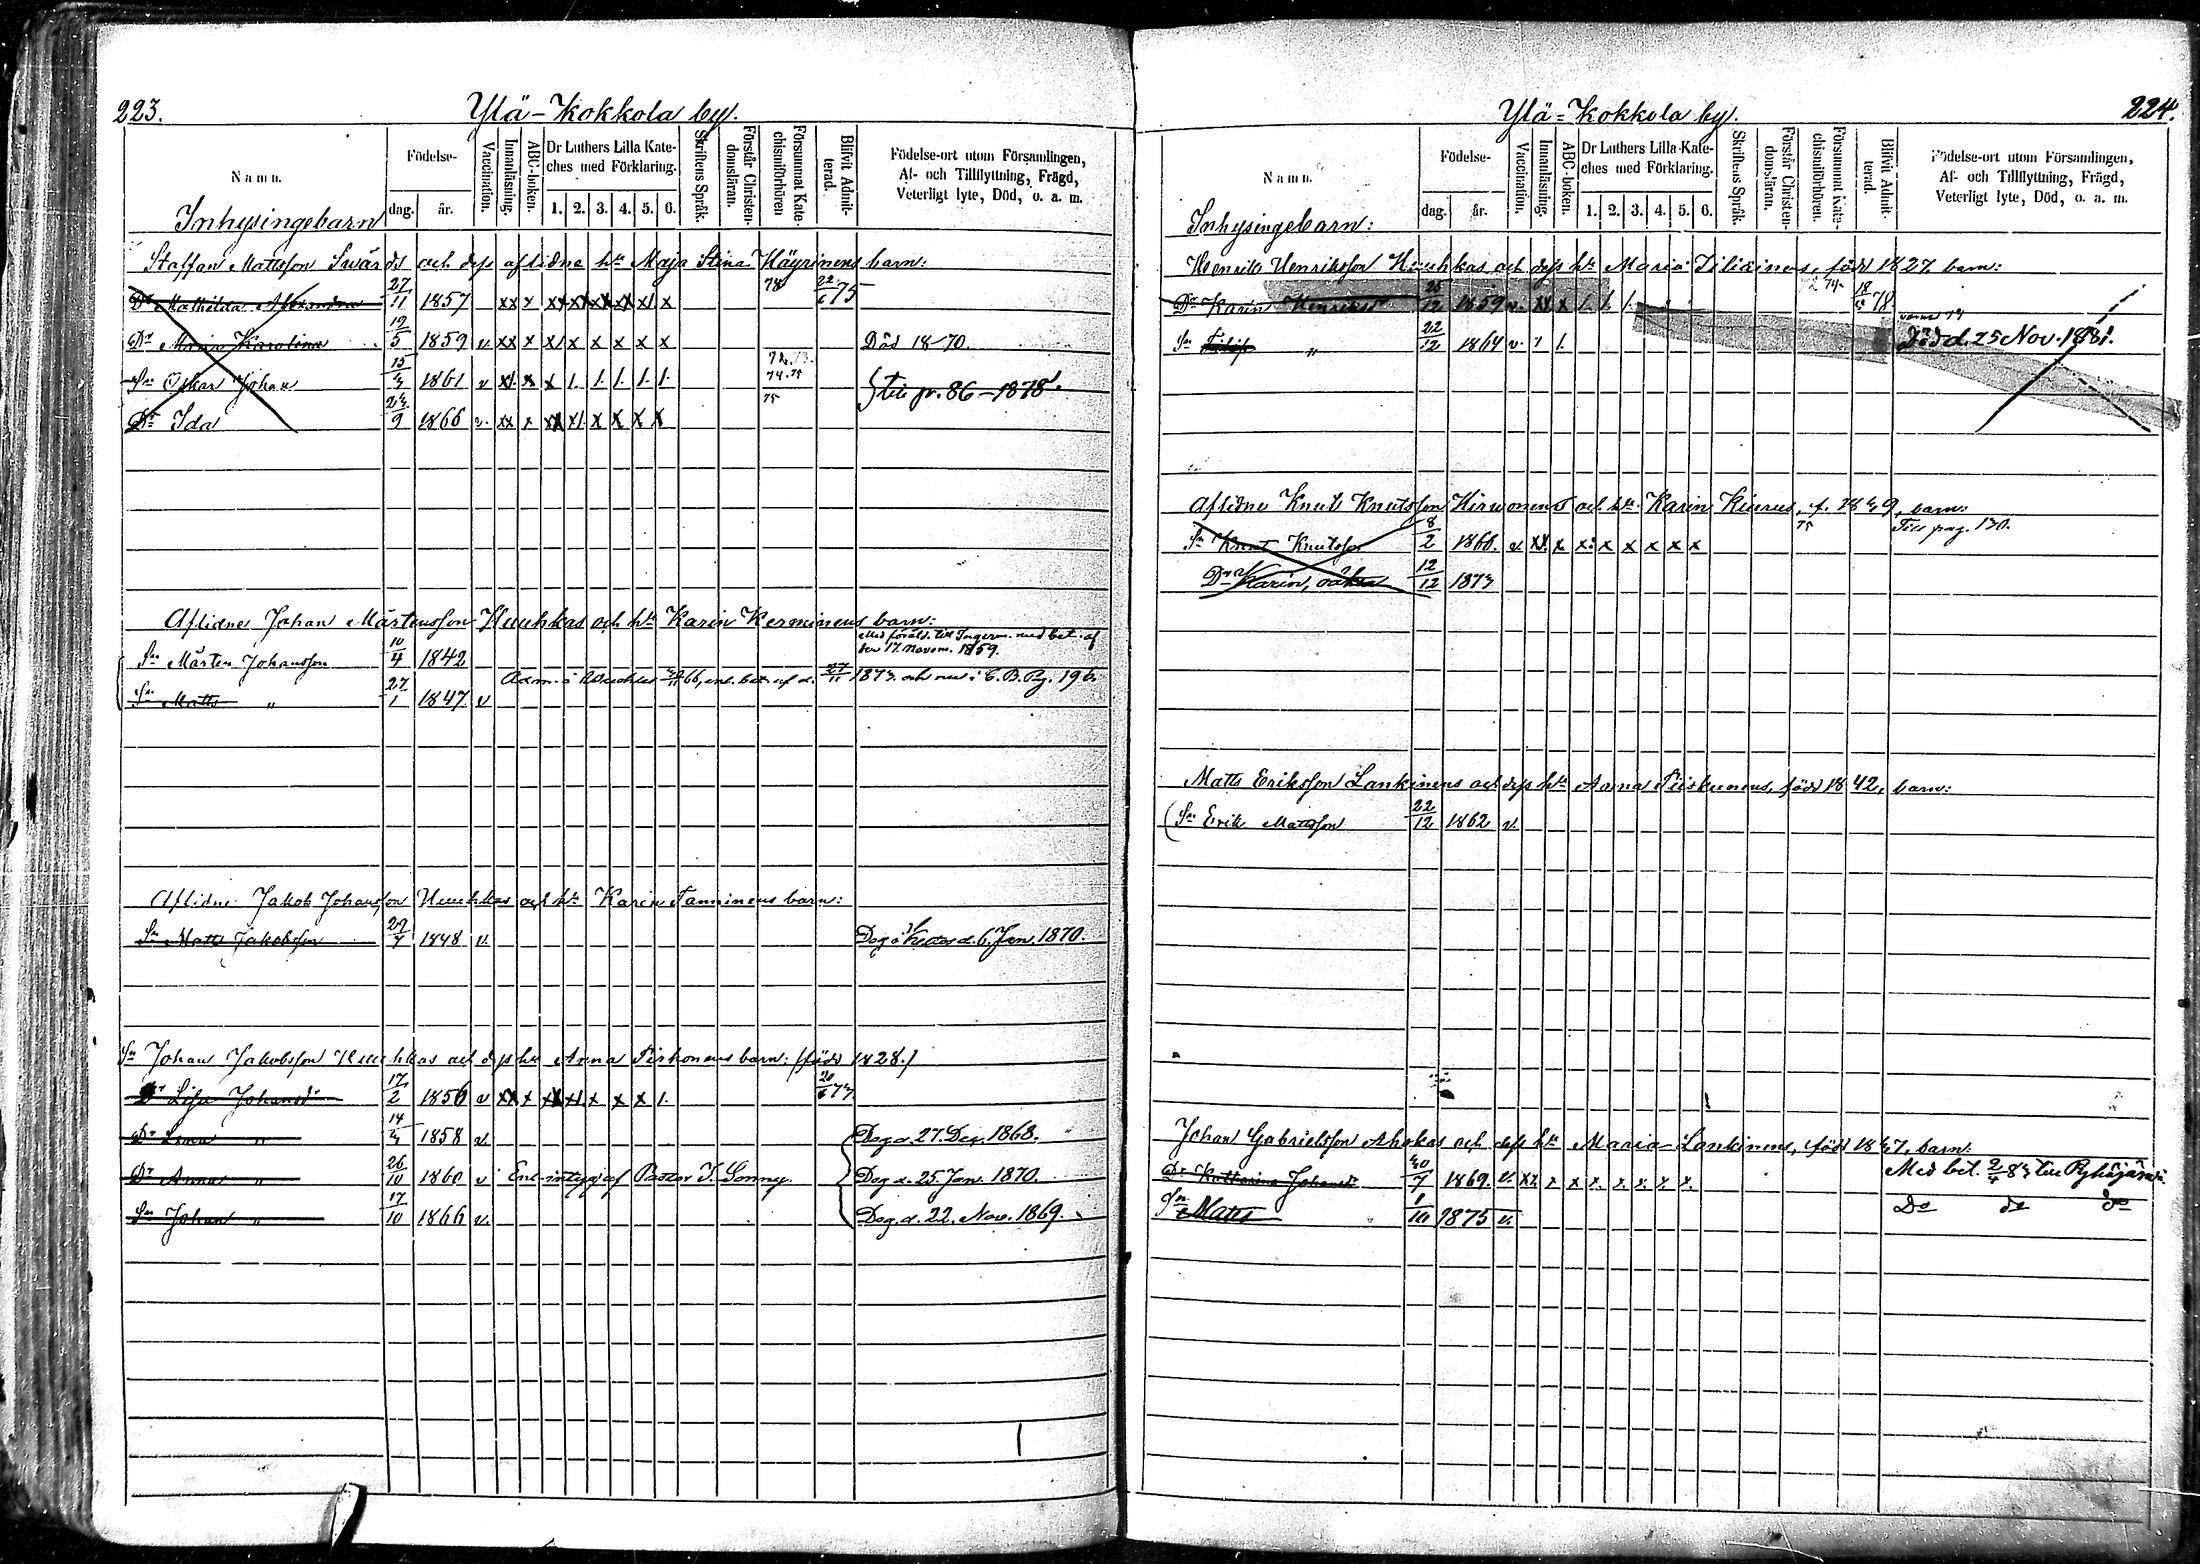 223.
Ylä-Kokkola by.
Namn.
Födelse-
dag. år.
Vaccination.
Innanläsning.
ABC-boken.
Dr Luthers Lilla Kate-
ches med Förklaring.
1. 2. 3. 4. 5. 6.
Skriftens Språk.
Förstår Christen-
domsläran.
Försummat Kate-
chismiförhören
Blifvit Admit-
terad.
Födelse-ort utom Församlingen,
Af- och Tillflyttning, Frägd,
Veterligt lyte, Död, o. a. m.
Inhysingebarn
Staffan Mattsson Swärds och dess aflidna h:u Maja Stina Häyrinens barn:
Dr Mathilda Alexandra 27/11 1857 xx x 78 22/6 75
Dr Maria Karolina 19/5 1859 v xx x x x x x x x Död 1870.
Sn Oskar Johan 15/3 1861 v x x 1. 1. 1. 1. 1. 74. 75
Till p. 86 - 1878.
Dr Ida 23/9 1866 v. xx x x x x x 75
Aflidne Johan Mårtensson Huuhkas och h:u Karin Kerminens barn:
Sn Mårten Johansson 10/4 1842 Med föräld. till Ingerm. med bet. af
den 17. Novem. 1859.
Sn Matts " 27/1 1847 v 66, enl. bet. af d. 27/11 1873 och nu i C.B. Pg. 196
Aflidne Jakob Johansson Huuhkas och h:u Karin Tanninens barn:
Sn Matts Jakobsson 29/7 1848 v. Dog d. 6. Jan. 1870.
Sn Johan Jakobsson Huuhkas och dess h:u Anna Pirhonens barn: (född 1828.)
Dr Lisa Johansdr 17/2 1856 v xx x x x x 1. 20/6 73
Dr Lena " 14/3 1858 v. Dog d. 27. Dec. 1868.
Dr Anna " 26/10 1860 v Enl. intyg af Pastor I. Sonny. Dog d. 25. Jan. 1870.
Sn Johan " 17/10 1866 v. Dog. d. 22. Nov. 1869.
Ylä-Kokkola by.
224.
Namn.
Födelse-
dag. år.
Vaccination.
Innanläsning.
ABC-boken.
Dr Luthers Lilla Kate-
ches med Förklaring.
1. 2. 3. 4. 5. 6.
Skriftens Språk.
Förstår Christen-
domsläran.
Försummat Kate-
chismiförhören.
Blifvit Admit-
terad.
Födelse-ort utom Församlingen,
Af- och Tillflyttning, Frägd,
Veterligt lyte, Död, o. a. m.
Inhysingebarn:
Henrik Henriksson Huuhkas och dess h:u Maria Siliäinens, född 1827 barn:
Dr Karin Henriksdr 25/12 1859 v. xx x 1. 1. 1. 74 78.
Sn Filip " 22/12 1864 v. 1 1. Död d. 25 Nov. 1881.
Aflidne Knut Knutsson Hirwonens och h:u Karin Kiurus, f. 1839, barn:
Sn Knut Knutsson 8/2 1866. v. xx. x. x. x x x x x 75 Till pag. 130.
Dr Karin, oäkta 12/12 1873
Matts Eriksson Lankinens och dess h:u Anna Piiskunens, född 1842, barn:
Sn Erik Mattsson 22/12 1862 v.
Johan Gabrielsson Ahokas och dess h:u Maria Lankinens, född 1837, barn:
Dr Katharina Johansdr 30/7 1869. v. xx. x x x. x. x. x. x. Med bet. 2/4 83 till Pyhäjärvi.
Sn Matts 1/10 1875 v. Do do do